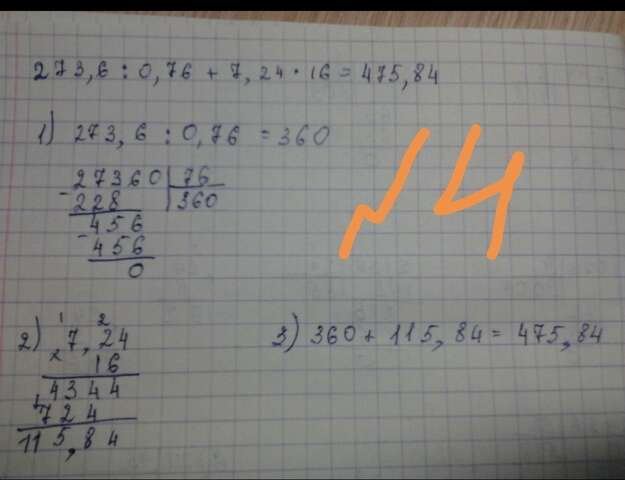 273,6 : 0,76 + 7,24 · 16 = 475,84
№4
1) 273,6 : 0,76 = 360
27360 | 76
- 228 | 360
456
- 456
0
2) 7,24
1 2
2
16
4344
+ 724
115,84
3) 360 + 115,84 = 475,84